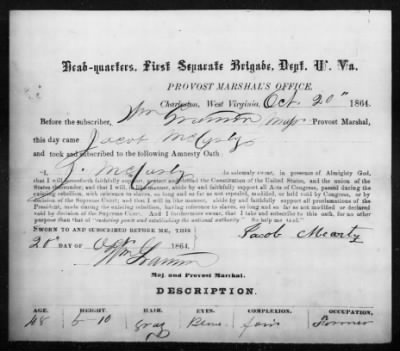 Head-quarters, First Separate Brigade, Dept. W. Va.
PROVOST MARSHAL'S OFFICE,
Charleston, West Virginia, Oct. 20" 1864.
Before the subscriber, Wm Gramm Majr Provost Marshal,
this day came Jacob McCarty
and took and subscribed to the following Amnesty Oath:
"I, J. McCarty do solemnly swear, in presence of Almighty God,
that I will henceforth faithfully support, protect and defend the Constitution of the United States, and the union of the
States thereunder; and that I will, in like manner, abide by and faithfully support all Acts of Congress, passed during the
existing rebellion, with reference to slaves, so long and so far as not repealed, modified, or held void by Congress, or by
decision of the Supreme Court; and that I will in like manner, abide by and faithfully support all proclamations of the
President, made during the existing rebellion, having reference to slaves, so long and so far as not modified or declared
void by decision of the Supreme Court. And I furthermore swear, that I take and subscribe to this oath, for no other
purpose than that of restoring peace and establishing the national authority." So help me God."
SWORN TO AND SUBSCRIBED BEFORE ME, THIS
20" DAY OF Oct 1864. Jacob Mcarty
Wm Gramm
Maj and Provost Marshal.
DESCRIPTION.
AGE. HEIGHT. HAIR. EYES. COMPLEXION. OCCUPATION,
48 5-10 gray Blue fair Farmer